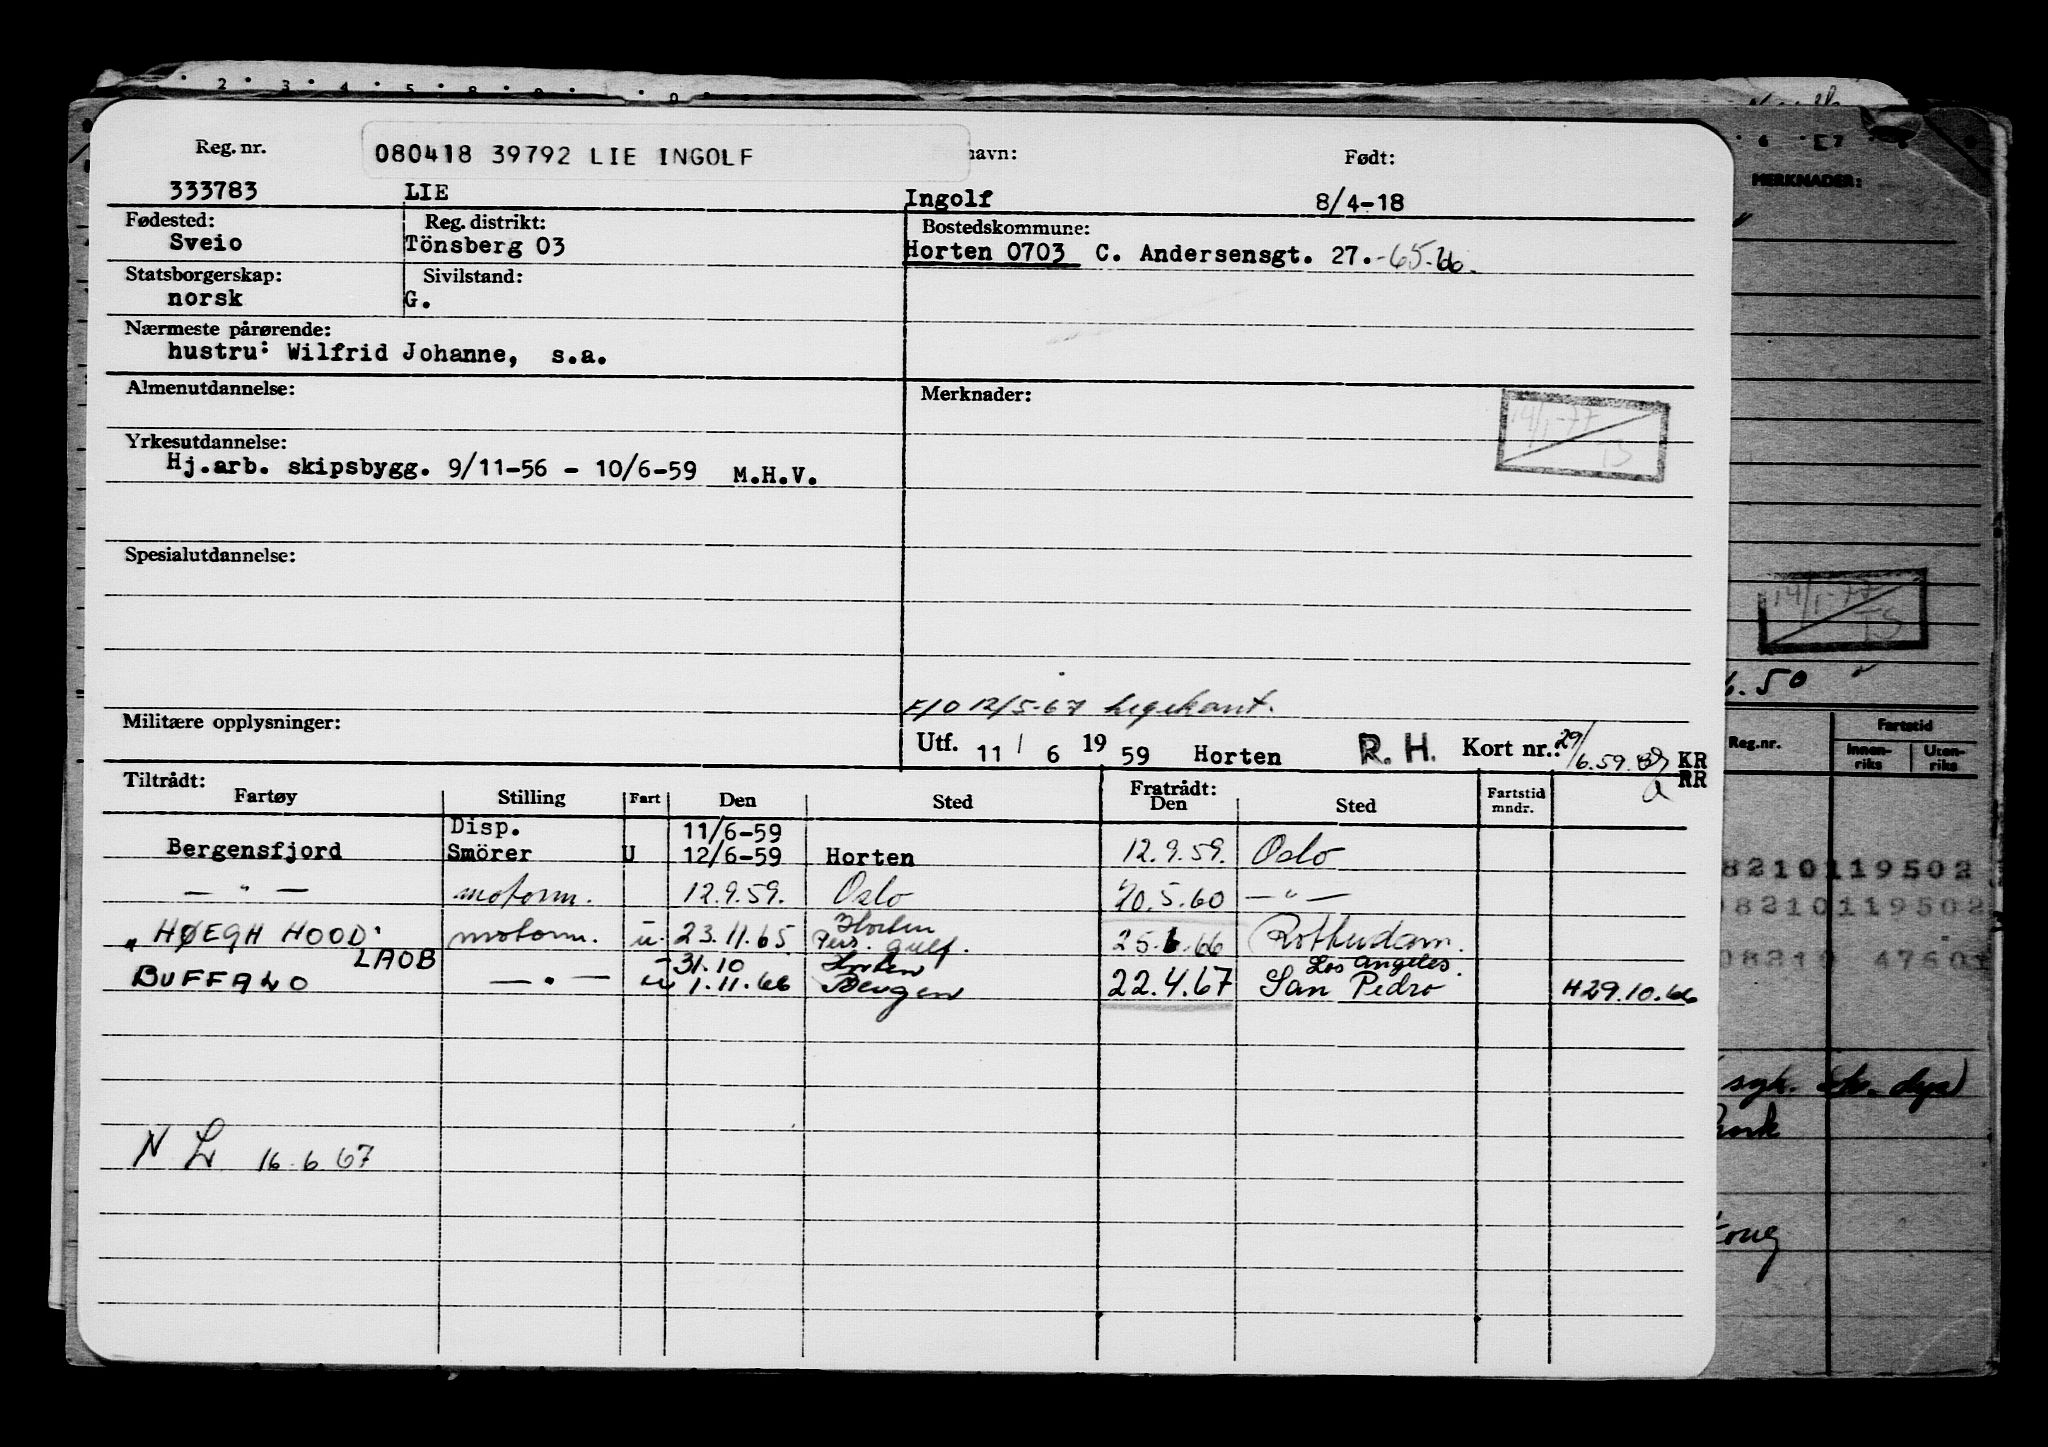 Reg. nr.
080418 39792 LIE INGOLF
navn:
Født:
333783 LIE Ingolf 8/4-18
Fødested: Reg. distrikt: Bostedskommune:
Sveio Tönsberg 03 Horten 0703 C. Andersensgt. 27.-65-66.
Statsborgerskap: Sivilstand:
norsk G.
Nærmeste pårørende:
hustru: Wilfrid Johanne, s.a.
Almenutdannelse: Merknader:
14/1-77
TS
Yrkesutdannelse:
Hj.arb. skipsbygg. 9/11-56 - 10/6-59 M.H.V.
Spesialutdannelse:
F/O 12/5-67 Legekont.
Militære opplysninger:
Utf. 11 / 6 19 59 Horten R. H. Kort nr.: 29/6.59. KR
RR
Tiltrådt: Fratrådt:
Fartøy Stilling Fart Den Sted Den Sted Fartstid mndr.
Disp. 11/6-59
Bergensfjord Smörer U 12/6-59 Horten 12.9.59. Oslo
— " — motorm. 12.9.59. Oslo 20.5.60 — " —
"HØEGH HOOD" motorm. u. 23.11.65 Horten Pers. Gulf. 25.6.66 Rotterdam.
LAOB 31.10 Horten Los Angeles.
BUFFALO — " — u 1.11.66 Bergen 22.4.67 San Pedro H 29.10.66
N L 16.6.67
MERKNADER:
14/1-77
TS
6.50
Reg.nr. Fartstid
Innen-riks Uten-riks
8210119502
08210119502
08219 47601
syk.